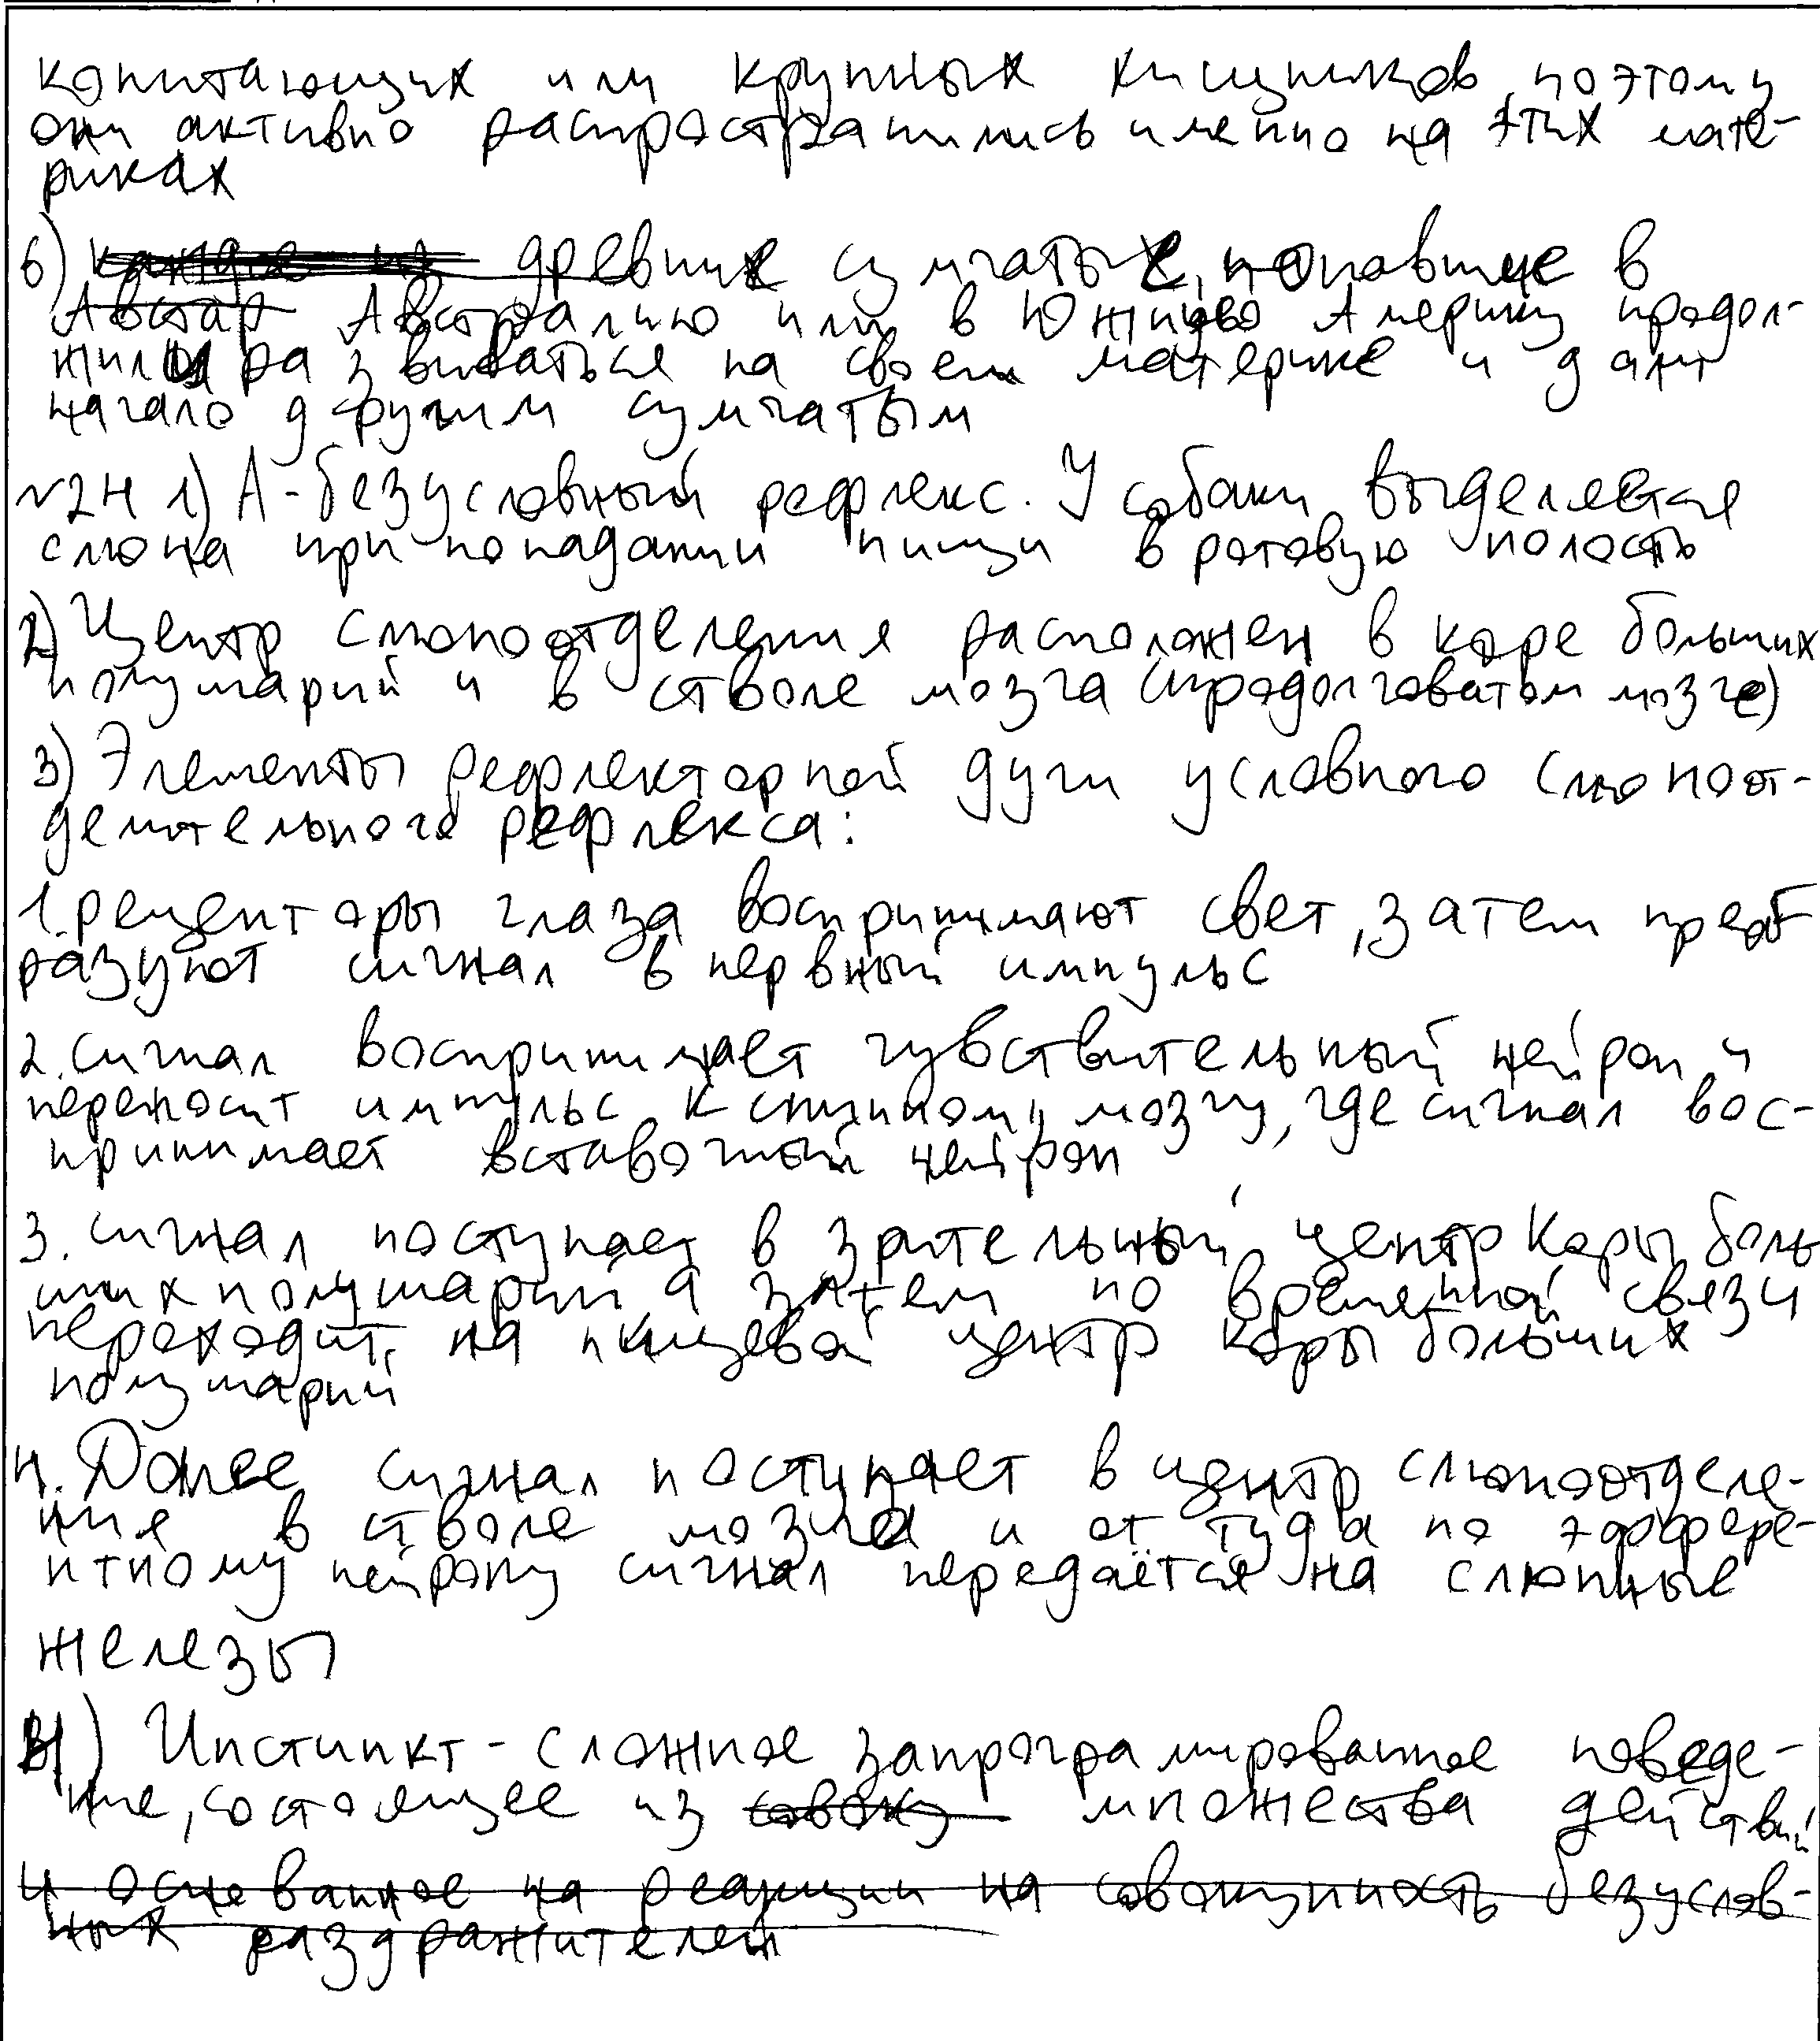 копитающих или крупных хищников, поэтому
они активно распространились именно на этих мате-
риках
6) каждые из древние сумчатые, попавшие в
Австар Австралию или в Южную Америку продол-
жили развиваться на своем материке и дали
начало другим сумчатым
№24 1) А-безусловный рефлекс. У собаки выделяется
слюна при попадании пищи в ротовую полость
2) Центр слюноотделения расположен в коре больших
полушарий и в стволе мозга (продолговатом мозге)
3) Элементы рефлекторной дуги условного слюноот-
делительного рефлекса:
1. рецепторы глаза воспринимают свет, затем преоб
разуют сигнал в нервный импульс
2. сигнал воспринимает чувствительный нейрон и
переносит импульс к спинному мозгу, где сигнал вос-
принимает вставочный нейрон
3. сигнал поступает в зрительный центр коры боль
ших полушарий а затем по временной связи
переходит на пищевой центр коры больших
полушарий
4. Далее сигнал поступает в центр слюноотделе-
ния в стволе мозга и от туда по эффере-
нтному нейрону сигнал передаётся на слюнные
железы
4) Инстинкт - сложное запрограмированное поведе-
ние, состоящее из совоку множества действий
и основанное на реакции на совокупность безуслов-
ных раздражителей